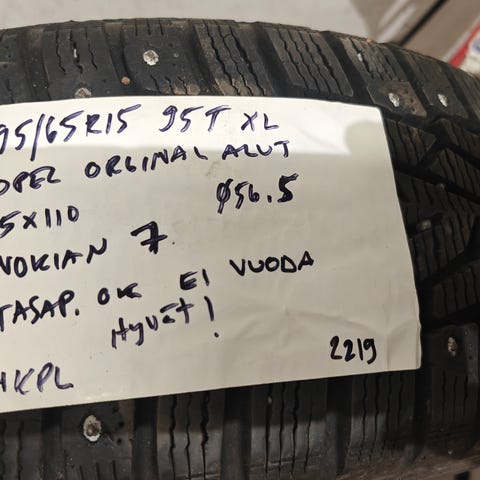 95/65R15 95T XL
OPEL ORGINAL ALUT
5X110 Ø56.5
NOKIAN 7.
TASAP. OK EI VUODA
Hyvät!
4KPL 2219